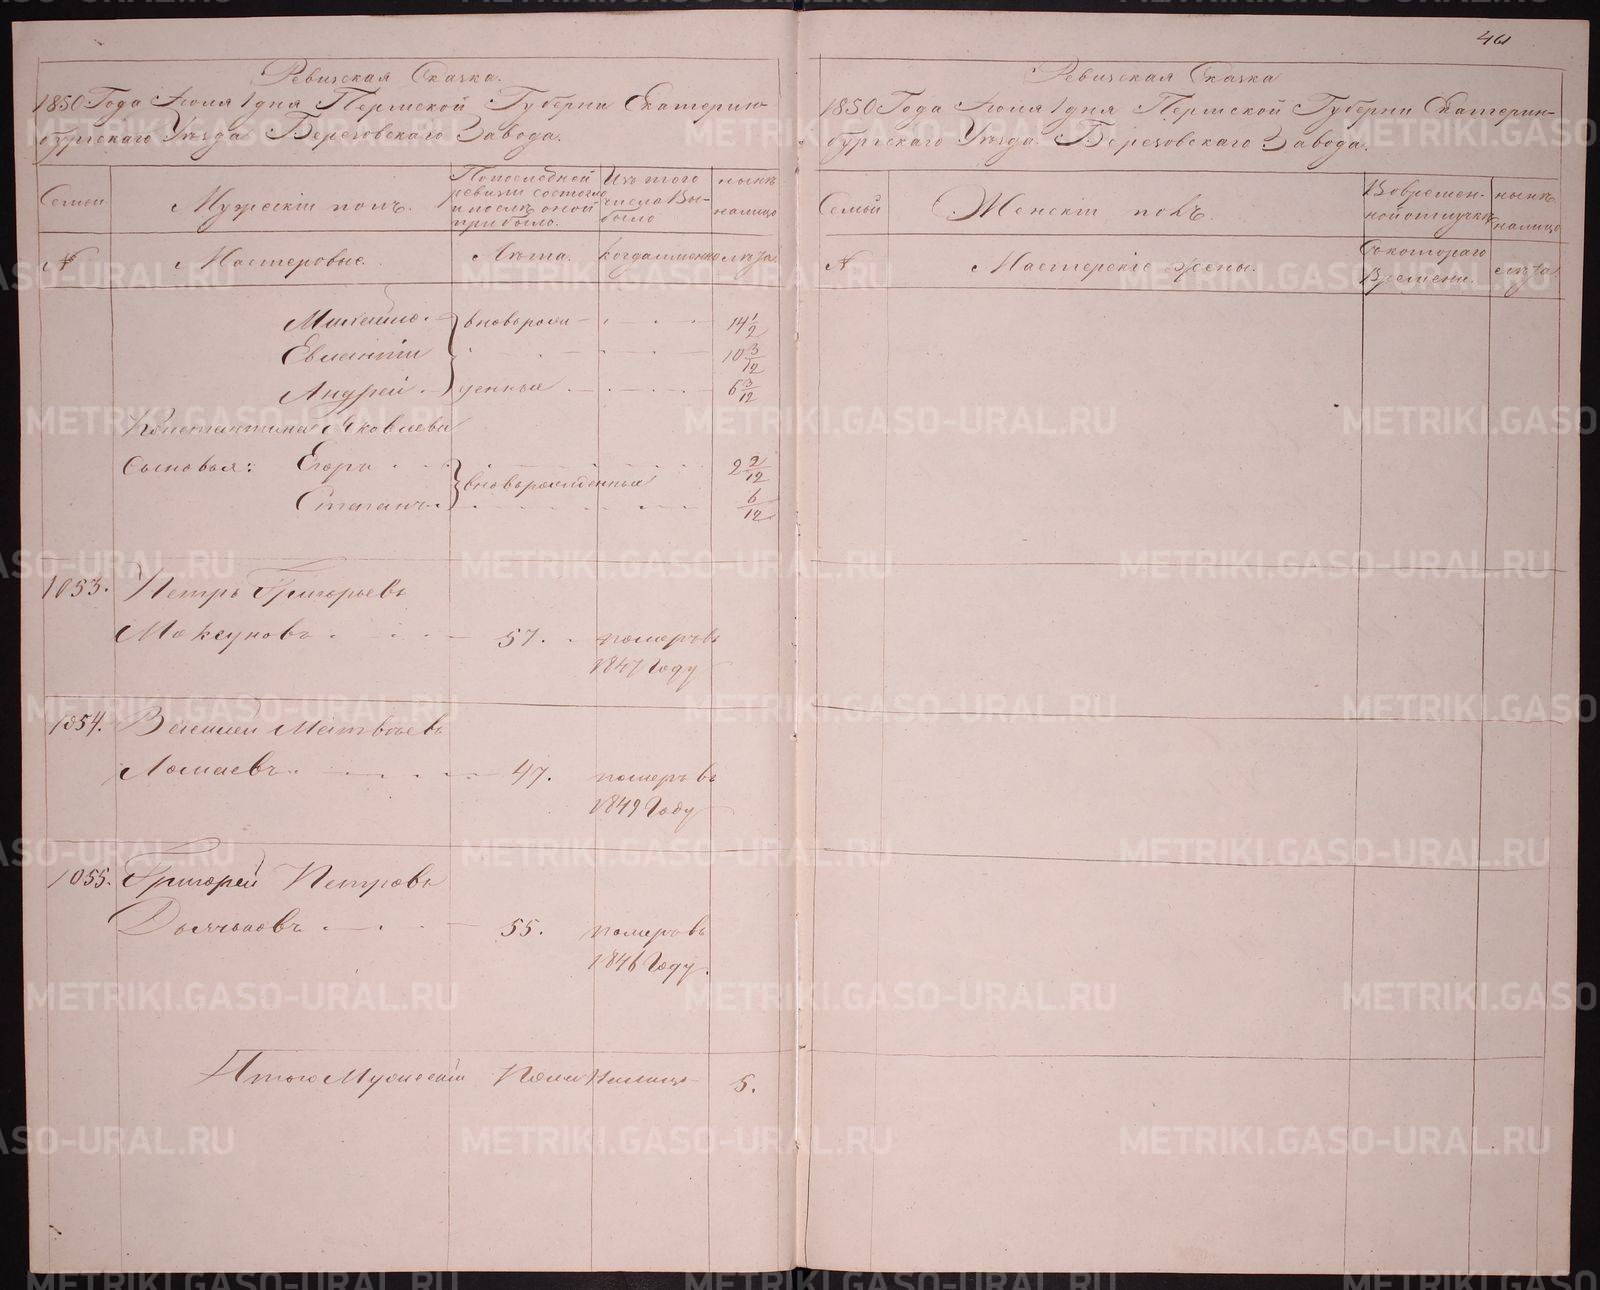 Ревизская Сказка.
1850 Года Июля 1 дня Пермской Губерни Екатерин-
бургскаго Уѣзда Березовскаго Завода.
Семьи
Мужескiй полъ.
По последней ревизи состояло и после оной прибыло.
Изъ того числа Вы-было
нынѣ налицо
№
Мастеровые.
Лѣта.
когда именно
лѣта
Михайло.
вноворож-
14 1/2
Евлампiй
10 3/12
Андрей.
денныя
6 3/12
Константина Яковлева
Сыновья: Егоръ
2 2/12
вноворожденныя
Степанъ.
6/12
1053. Петръ Григорьевъ
Моксуновъ
57.
померъ въ
1847 Году
1054. Василей Матвѣевъ
Ломаевъ.
47.
померъ въ
1849 Году
1055. Григорей Петровъ
Дьячковъ
55.
померъ въ
1846 Году.
Итого Мужескiй Полъ Налицо
5.
461
Ревизская Сказка
1850 Года Июля 1 дня Пермской Губерни Екатерин-
бургскаго Уѣзда. Березовскаго Завода.
Семьй
Женскiй полъ.
Во времен-ной отлучкѣ
нынѣ налицо
№
Мастерскiе жены.
Съ котораго Времени.
лѣта
METRIKI.GASO-URAL.RU